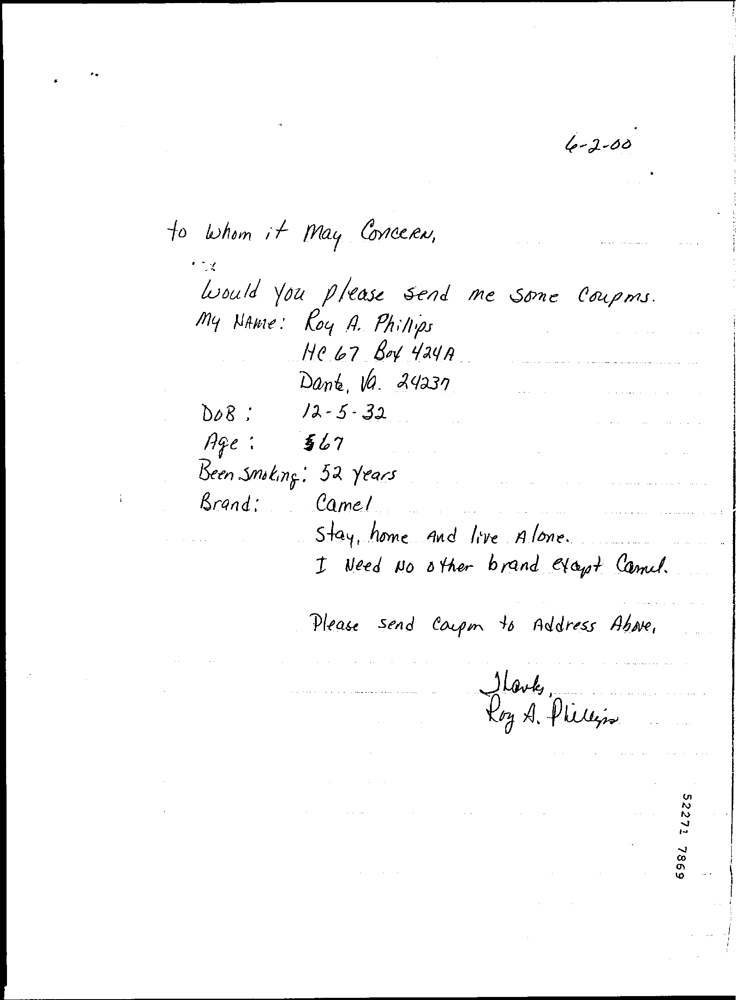 6-2-00
to Whom it May Concern,
Would you please send me some Coupons.
My Name: Roy A. Phillips
HC 67 Box 424A
Dante, Va. 24237
DOB: 12-5-32
Age: 67
Been Smoking: 52 years
Brand: Camel
Stay, home And live Alone.
I Need No other brand except Camel.
Please send Coupon to Address Above,
Thanks,
Roy A. Phillips
52271 7869